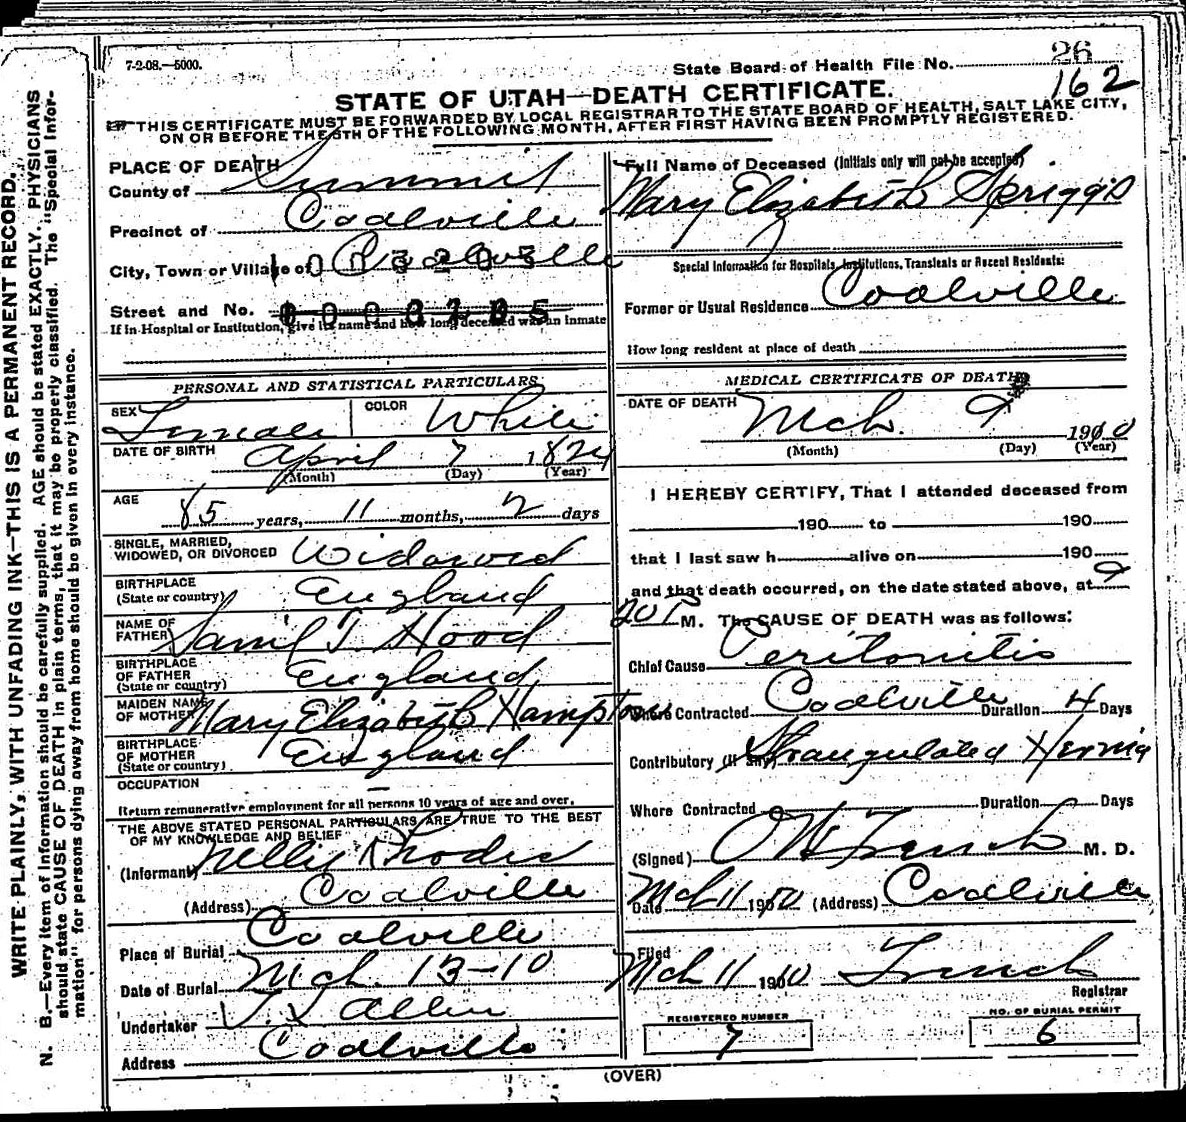 7-2-08.—5000.
26
State Board of Health File No.
162
STATE OF UTAH—DEATH CERTIFICATE.
THIS CERTIFICATE MUST BE FORWARDED BY LOCAL REGISTRAR TO THE STATE BOARD OF HEALTH, SALT LAKE CITY,
ON OR BEFORE THE 5TH OF THE FOLLOWING MONTH, AFTER FIRST HAVING BEEN PROMPTLY REGISTERED.
WRITE PLAINLY, WITH UNFADING INK—THIS IS A PERMANENT RECORD.
N. B.—Every item of information should be carefully supplied. AGE should be stated EXACTLY. PHYSICIANS
should state CAUSE OF DEATH in plain terms, that it may be properly classified. The "Special Infor-
mation" for persons dying away from home should be given in every instance.
PLACE OF DEATH
County of Summit
Precinct of Coalville
City, Town or Village of Coalville
Street and No.
If in Hospital or Institution, give its name and how long deceased was an inmate
PERSONAL AND STATISTICAL PARTICULARS
SEX Female COLOR White
DATE OF BIRTH April 7 1824
(Month) (Day) (Year)
AGE 85 years, 11 months, 2 days
SINGLE, MARRIED,
WIDOWED, OR DIVORCED Widowed
BIRTHPLACE
(State or country) England
NAME OF
FATHER Saml T. Hood
BIRTHPLACE
OF FATHER
(State or country) England
MAIDEN NAME
OF MOTHER Mary Elizabeth Hampton
BIRTHPLACE
OF MOTHER
(State or country) England
OCCUPATION –
Return remunerative employment for all persons 10 years of age and over.
THE ABOVE STATED PERSONAL PARTICULARS ARE TRUE TO THE BEST
OF MY KNOWLEDGE AND BELIEF
(Informant) Nellie Rhodes
(Address) Coalville
Place of Burial Coalville
Date of Burial Mch. 13-10
Undertaker Allen
Address Coalville
Full Name of Deceased (Initials only will not be accepted)
Mary Elizabeth Spriggs
Special Information for Hospitals, Institutions, Transients or Recent Residents:
Former or Usual Residence Coalville
How long resident at place of death
MEDICAL CERTIFICATE OF DEATH
DATE OF DEATH Mch. 9 1910
(Month) (Day) (Year)
I HEREBY CERTIFY, That I attended deceased from
190 to 190
that I last saw h alive on 190
and that death occurred, on the date stated above, at 9
20 P M. The CAUSE OF DEATH was as follows:
Chief Cause Peritonitis
Where Contracted Coalville Duration 4 Days
Contributory (If any) Strangulated Hernia
Where Contracted Duration Days
(Signed) French M. D.
Date Mch 11 1910 (Address) Coalville
Filed
Mch 11 1910 French
Registrar
REGISTERED NUMBER
7
NO. OF BURIAL PERMIT
6
(OVER)